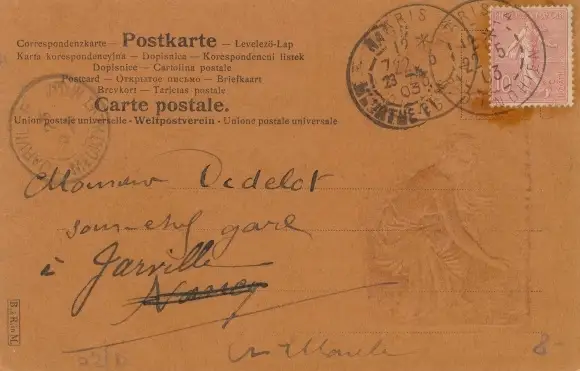 Correspondenzkarte – Postkarte – Levelező-Lap
Karta korespondencyjna – Dopisnice – Korespondenčni listek
Dopisnice – Cartolina postale
Postcard – Открытое письмо – Briefkaart
Brevkort – Tarjetas postales
Carte postale.
Union postale universelle – Weltpostverein – Unione postale universale
PARIS
12
23 - 5
03
10
JARVILLE
Monsieur Dedelot
sous-chef gare
à Jarville
Nancy